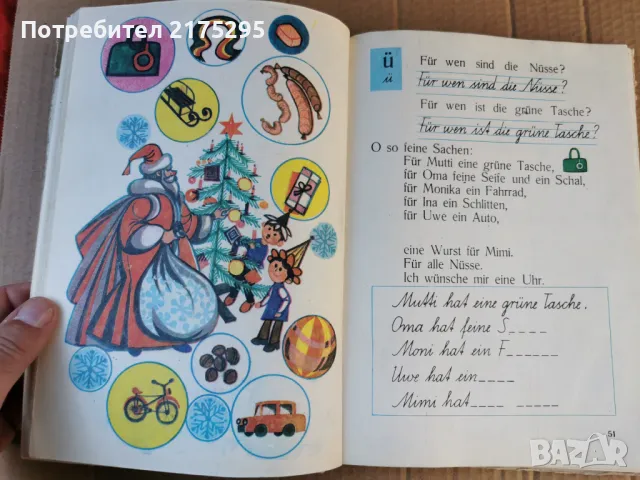 Потребител 2175295
ü
ü
Für wen sind die Nüsse?
Für wen sind die Nüsse?
Für wen ist die grüne Tasche?
Für wen ist die grüne Tasche?
O so feine Sachen:
Für Mutti eine grüne Tasche,
für Oma feine Seife und ein Schal,
für Monika ein Fahrrad,
für Ina ein Schlitten,
für Uwe ein Auto,
eine Wurst für Mimi.
Für alle Nüsse.
Ich wünsche mir eine Uhr.
Mutti hat eine grüne Tasche.
Oma hat feine S_ _ _ _
Moni hat ein F_ _ _ _ _ _
Uwe hat ein _ _ _ _
Mimi hat _ _ _ _ _ _ _ _ _
51
BAZAR
Потребител 2175295